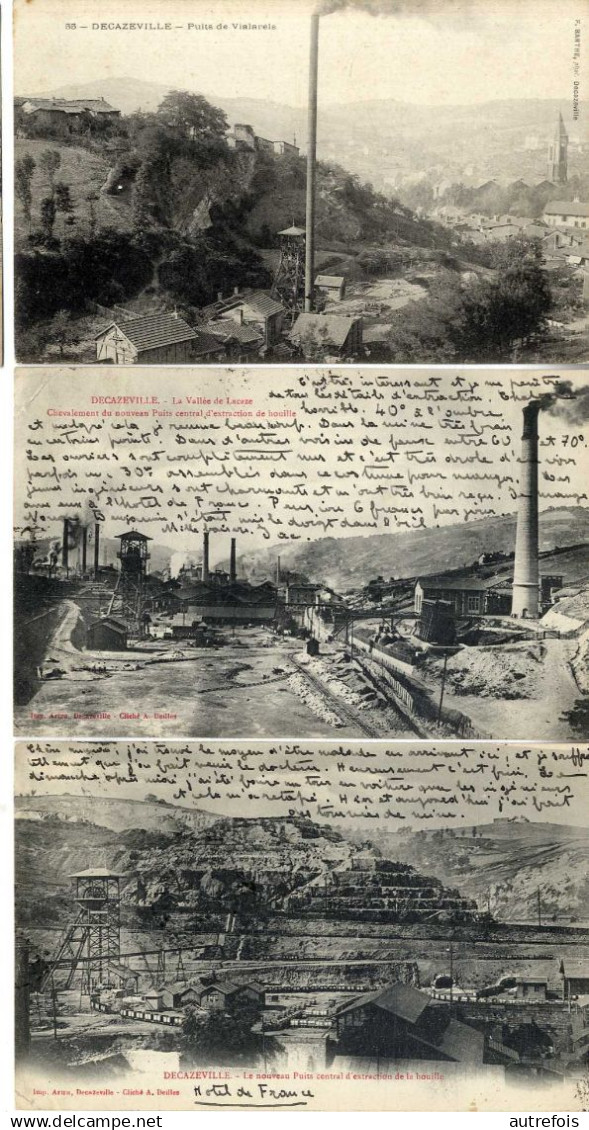 55 - DECAZEVILLE - Puits de Vialarels
DECAZEVILLE. - La Vallée de Lacaze
Chevalement du nouveau Puits central d'extraction de houille
C'est très intéressant et je me pénètre
de tous les détails d'extraction.
horrible. 40° à l'ombre
et malgré cela je remue beaucoup. Dans la mine très frais
en certains points. Dans d'autres voisins de fausse entre 60 et 70°.
Les ouvriers sont complètement nus et c'est très drôle d'en voir
parfois 30 assemblés dans ce costume pour manger. Les
jeunes ingénieurs sont charmants et m'ont très bien reçu. Je mange
avec eux à l'hôtel de France. Pension 6 francs par jour
s'était mis le doigt dans l'œil
Mille baisers. Jac
Imp. Artru, Decazeville - Cliché A. Deilles
j'ai trouvé le moyen d'être malade en arrivant ici, et je souffrais
tellement que j'ai fait venir le docteur. Heureusement c'est fini. Le
dimanche après midi j'ai été faire un tour en voiture avec les ingénieurs
et cela m'a retapé. Hier et aujourd'hui j'ai fait
des tournées de mine.
DECAZEVILLE. - Le nouveau Puits central d'extraction de la houille
Imp. Artru, Decazeville - Cliché A. Deilles
Hotel de France
autrefois
© delcampe.net